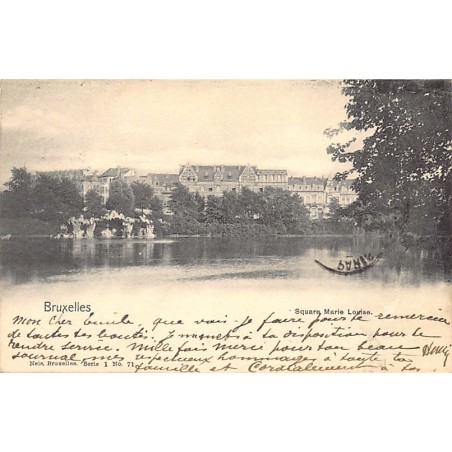 Bruxelles
Square Marie Louise.
Mon cher Emile, que vais-je faire pour te remercier
de toutes tes bontés. à ta disposition pour te
rendre service. Mille fois merci pour ton beau
journal mes respectueux hommages à toute ta
famille et Cordialement à toi
Henri
Nels, Bruxelles. Serie 1 No. 71
PARIS